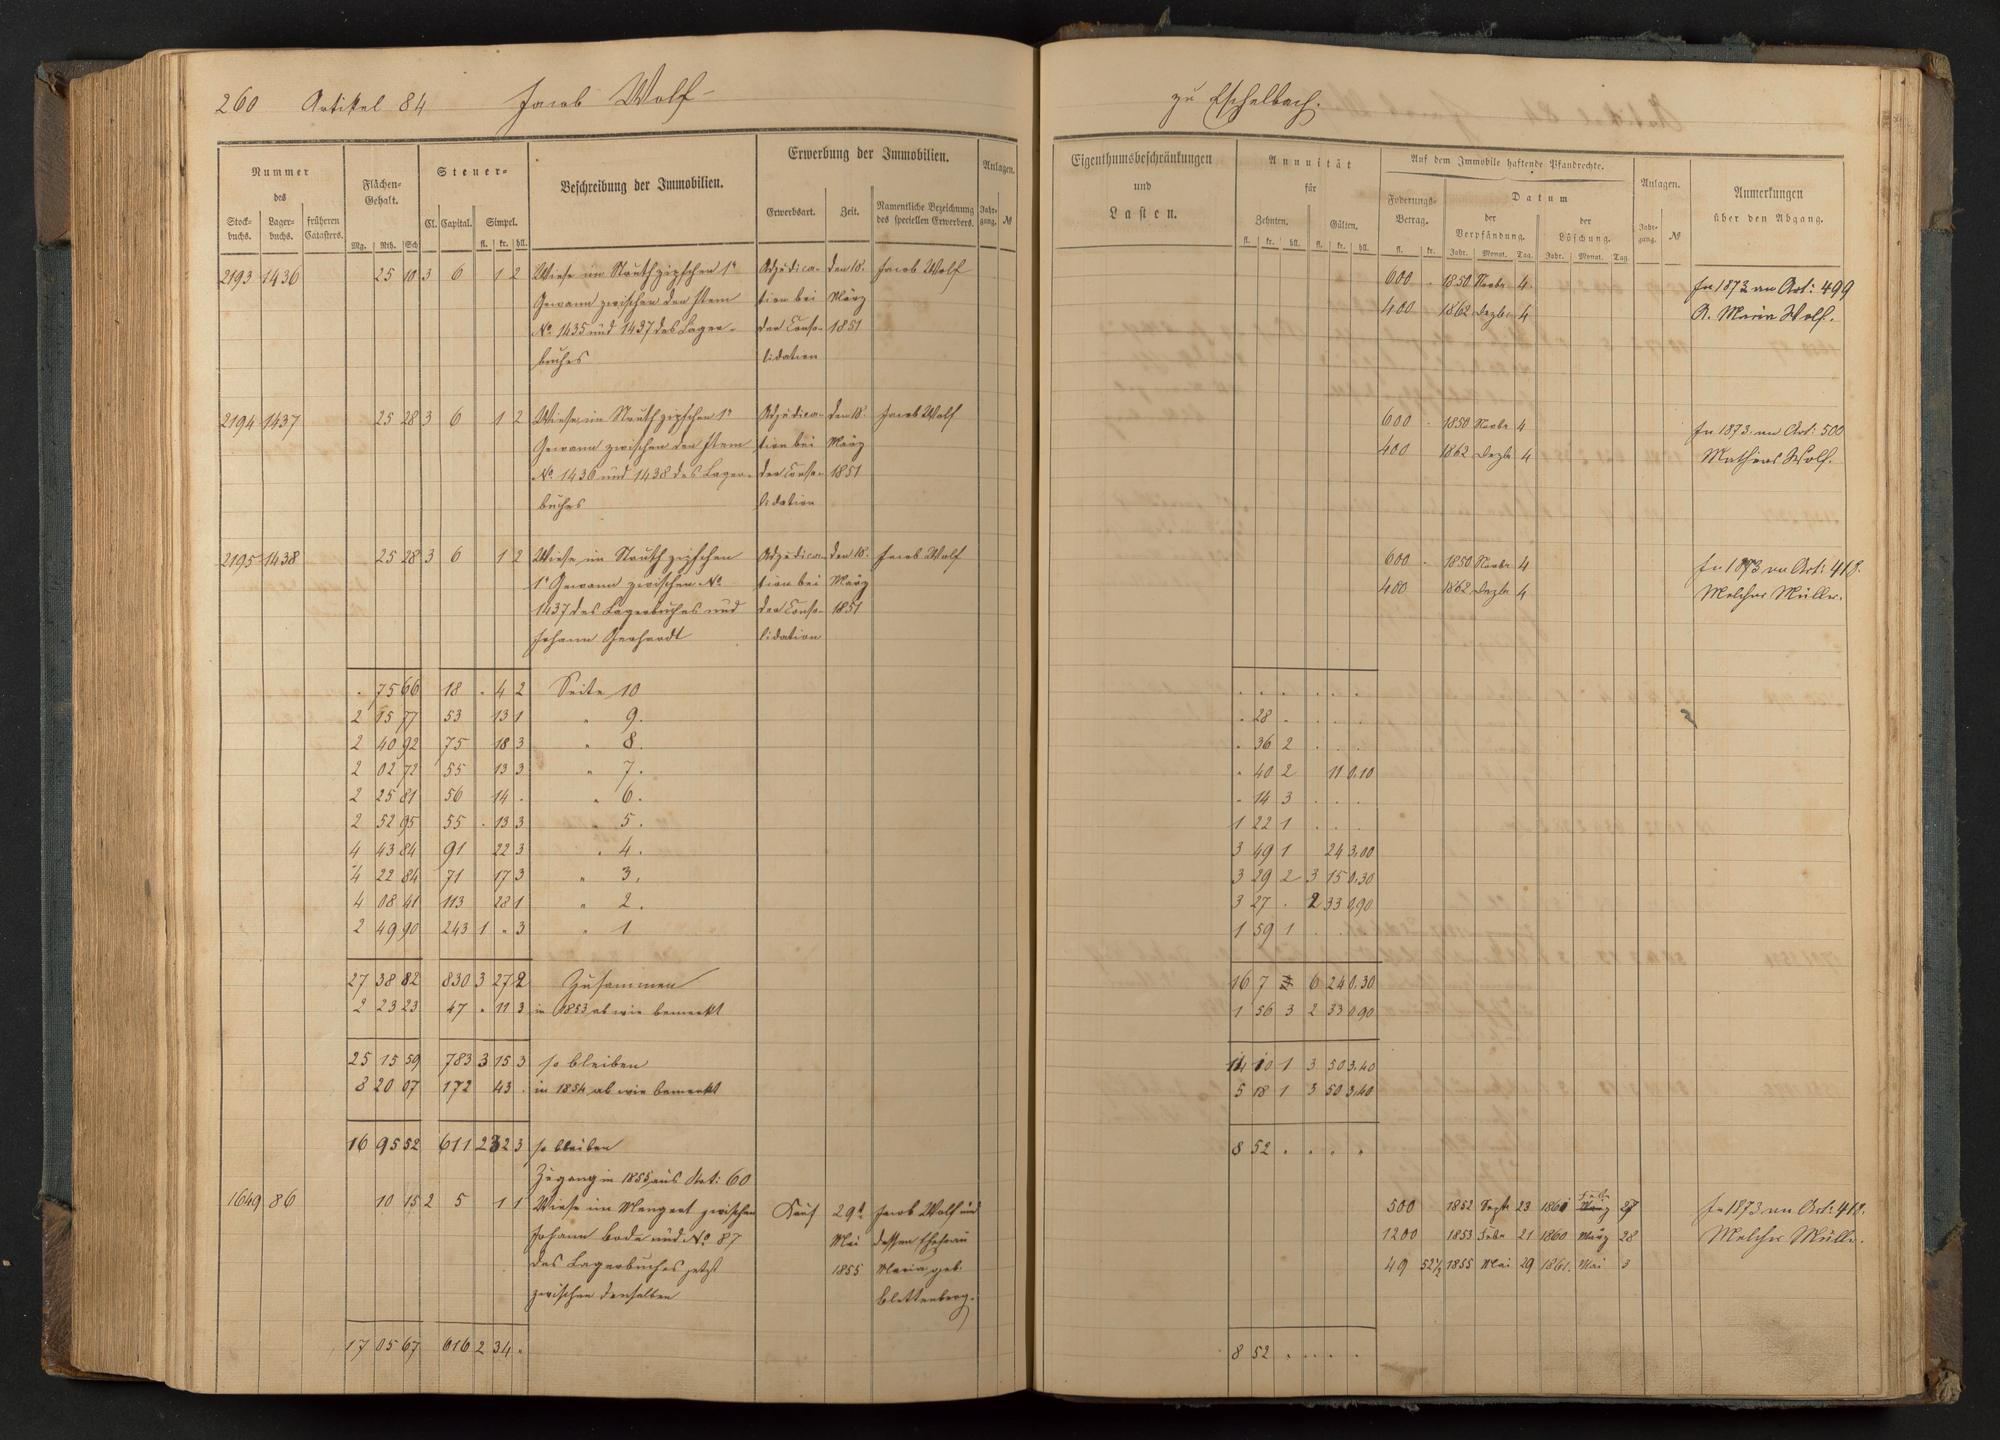 260 Artikel 84 Jacob Wolf
zu Eschelbach.
Nummer
des
Stock-
buchs. Lager-
buchs. früheren
Catasters.
Flächen-
Gehalt.
Mg. Rth. Sch
Steuer-
Cl. Capital. Simpel.
fl. kr. hll.
Beschreibung der Immobilien.
Erwerbung der Immobilien.
Erwerbsart. Zeit. Namentliche Bezeichnung
des speciellen Erwerbers.
Anlagen.
Jahr-
gang. №
Eigenthumsbeschränkungen
und
Lasten.
Annuität
für
Zehnten. Gülten.
fl. kr. hll. fl. kr. hll.
Auf dem Immobile haftende Pfandrechte.
Foderungs-
Betrag.
fl. kr.
Datum
der
Verpfändung.
Jahr. Monat. Tag.
der
Löschung.
Jahr. Monat. Tag.
Anlagen.
Jahr-
gang. №
Anmerkungen
über den Abgang.
2193 1436 25 10 3 6 1 2 Wiese im Struthzipfchen 1r Adjudica- den 18. Jacob Wolf 600 1850 Novbr 4 In 1873 an Art: 499
Gewann zwischen den Item tion bei März 400 1862 Dezbr 4 A. Maria Wolf.
No 1435 und 1437 des Lager- der Conso- 1851
buches lidation
2194 1437 25 28 3 6 1 2 Wiese im Struthzipfchen 1r Adjudica- den 18. Jacob Wolf 600 1850 Novbr 4 In 1873 an Art: 500
Gewann zwischen den Item tion bei März 400 1862 Dezbr 4 Mathias Wolf.
No 1436 und 1438 des Lager- der Conso- 1851
buches lidation
2195 1438 25 28 3 6 1 2 Wiese im Struthzipfchen Adjudica- den 18. Jacob Wolf 600 1850 Novbr 4 In 1873 an Art: 418.
1r Gewann zwischen No tion bei März 400 1862 Dezbr 4 Melchior Müller.
1437 des Lagerbuches und der Conso- 1851
Johann Gerhardt lidation
. 75 66 18 . 4 2 Seite 10 . . . . . .
2 15 77 53 13 1 " 9. . 28 . . . .
2 40 92 75 18 3 " 8. . 36 2 . . .
2 02 72 55 13 3 " 7. . 40 2 11 0.10
2 25 81 56 14 . " 6. . 14 3 . . .
2 52 95 55 . 13 3 " 5. 1 22 1 . . .
4 43 84 91 22 3 " 4. 3 49 1 24 3.00
4 22 84 71 17 3 " 3. 3 29 2 3 15 0.30
4 08 41 113 28 1 " 2. 3 27 . 2 33 0.90
2 49 90 243 1 . 3 " 1 1 59 1 . . .
27 38 82 830 3 27 2 Zusammen 16 7 6 24 0.30
2 23 23 47 . 11 3 in 1853 ab wie bemerkt 1 56 3 2 33 0.90
25 15 59 783 3 15 3 so bleiben 14 10 1 3 50 3.40
8 20 07 172 43 . in 1854 ab wie bemerkt 5 18 1 3 50 3.40
16 95 52 611 2 32 3 so bleiben 8 52 . . . .
Zugang in 1855 aus Art: 60
1649 86 10 15 2 5 1 1 Wiese im Mengert zwischen Kauf 29t Jacob Wolf und 500 1852 Septr 23 1861 Febr 27 In 1873 an Art: 418.
Johann Bode und No 87 Mai dessen Ehefrau 1200 1853 Febr 21 1860 März 28 Melchior Müller.
des Lagerbuches jetzt 1855 Maria geb. 49 52½ 1855 Mai 29 1861. Mai 3
zwischen denselben Blettenberg.
17 05 67 616 2 34 . 8 52 . . . .